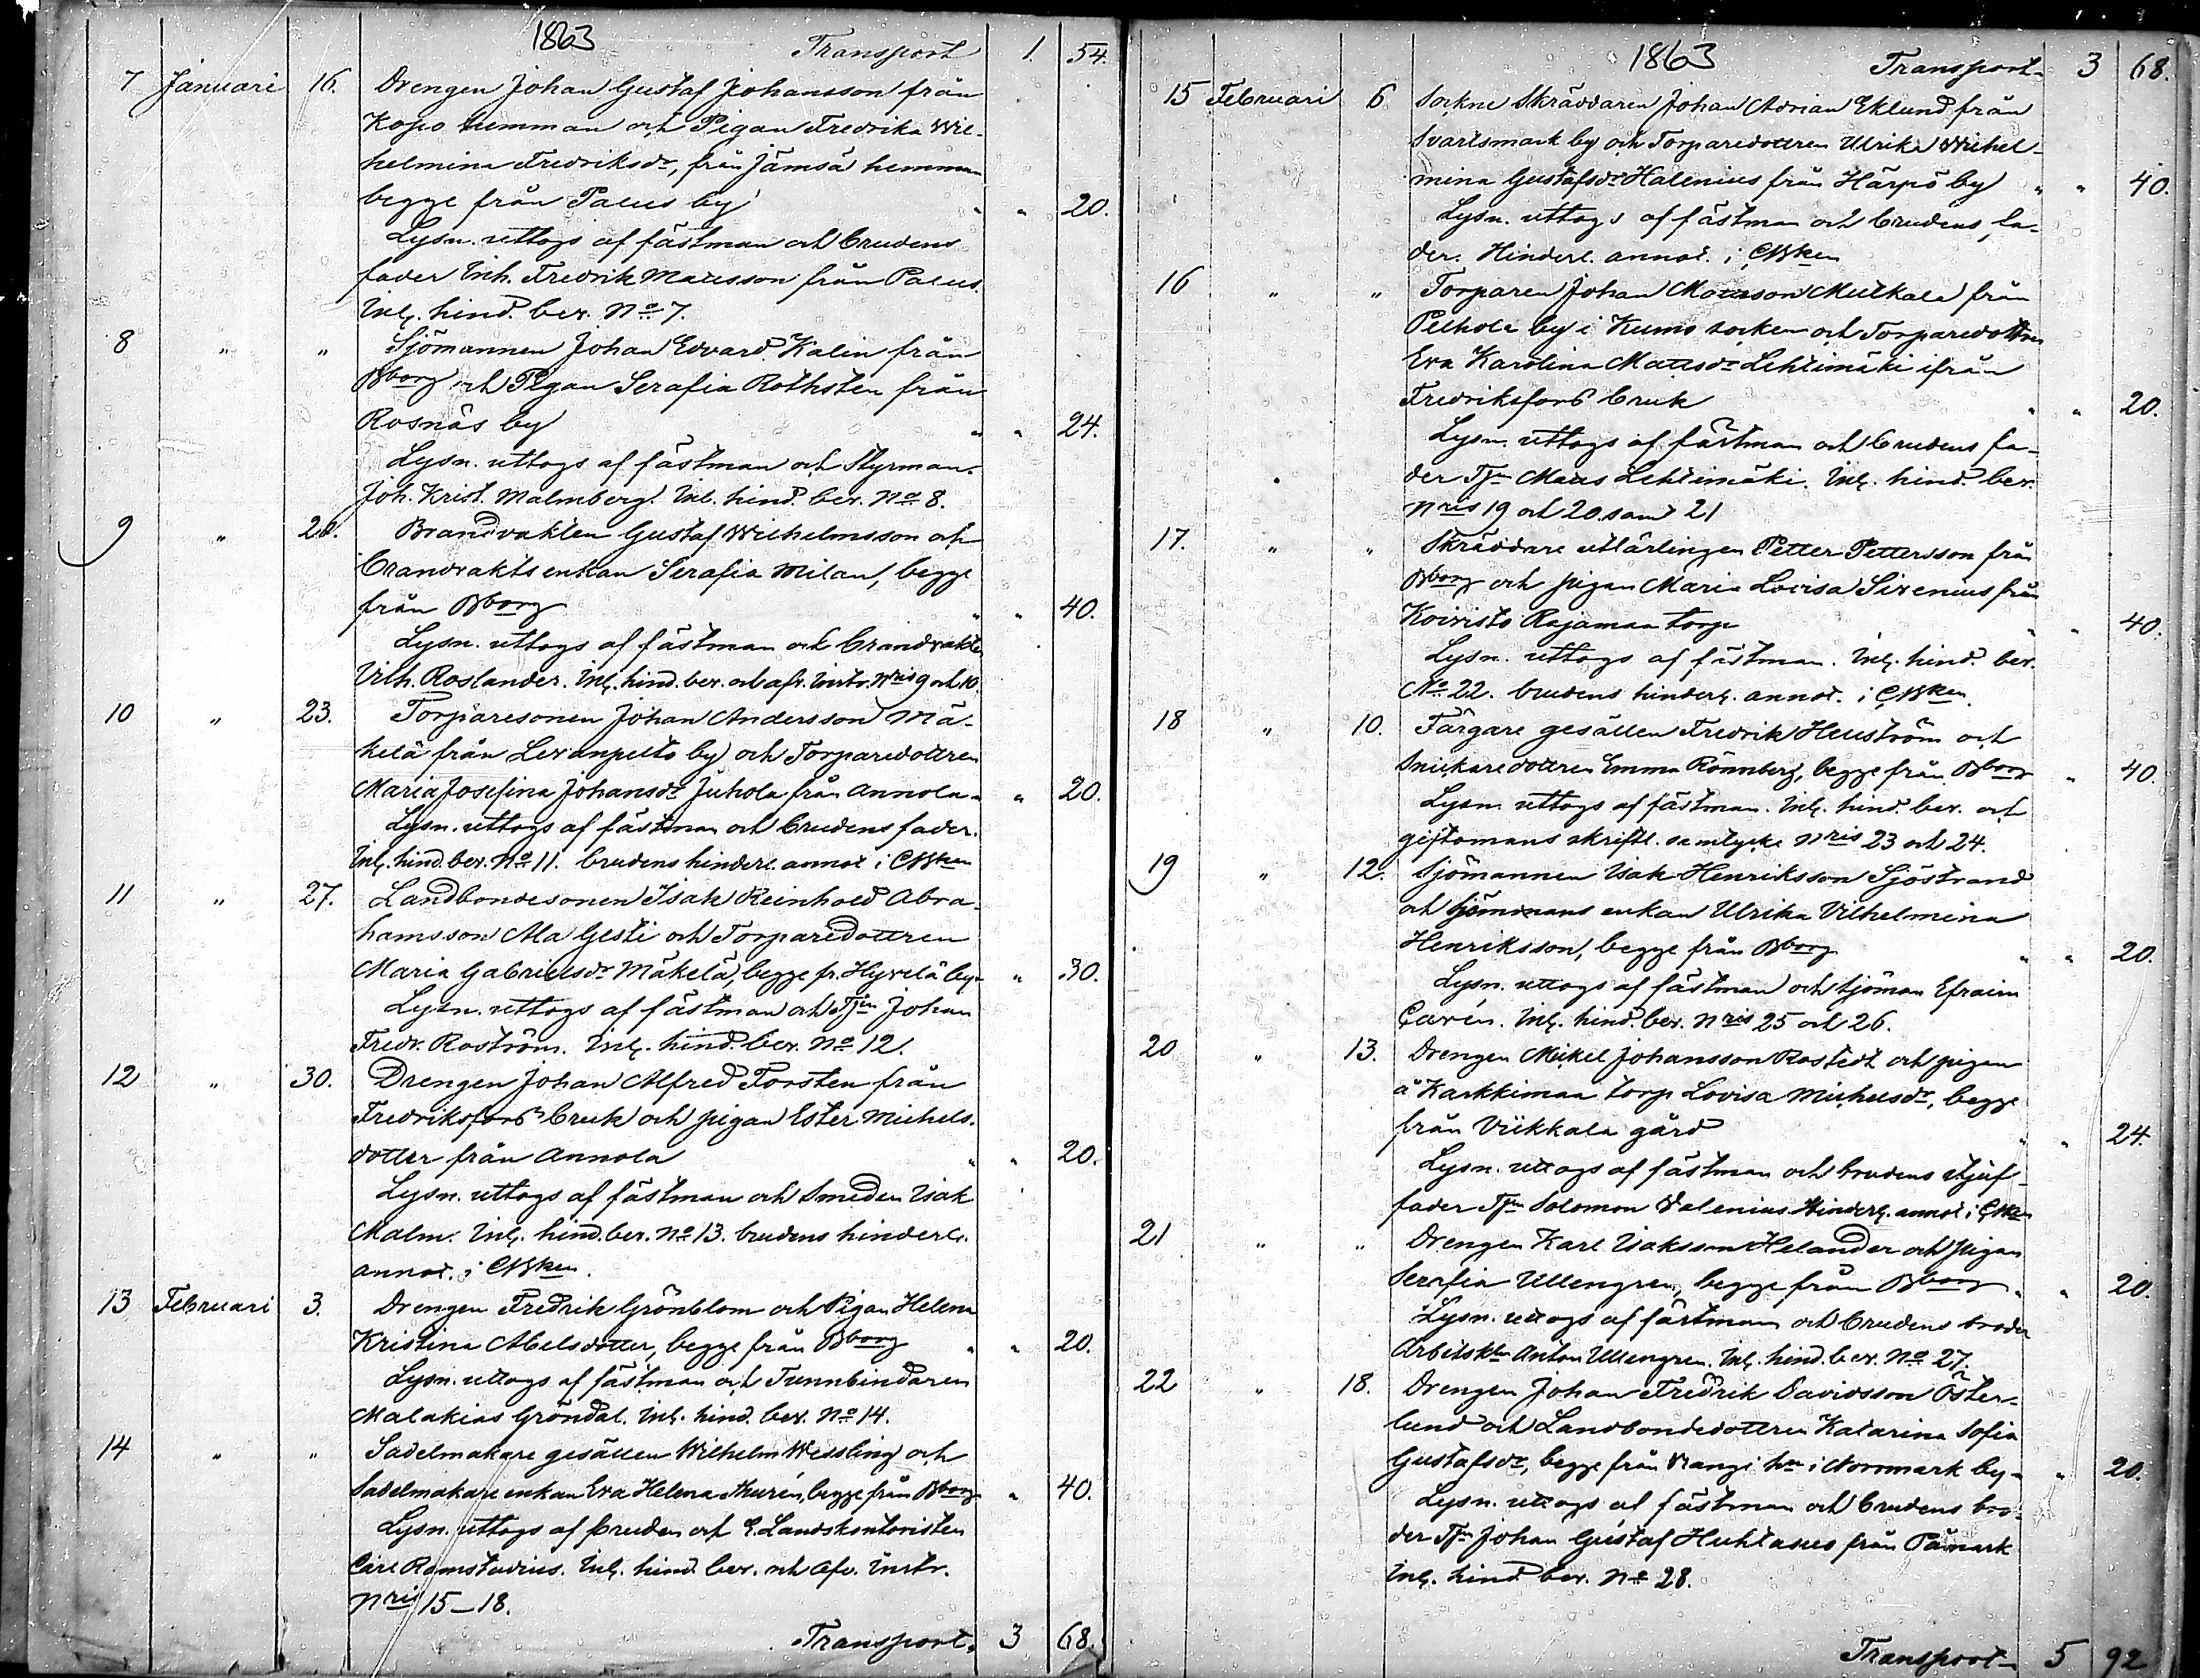 1863
Transport 1. 54.
7 Januari 16. Drengen Johan Gustaf Johansson från
Kopo hemman och Pigan Fredrika Wil-
helmina Fredriksdr, från Jämsä hemman
begge från Paeus by " " 20.
Lysn. uttogs af fästman och brudens
fader Inh. Fredrik Matisson från Paeus.
Inl. hind. bev. No 7.
8 " " Sjömannen Johan Edvard Kalin från
Bborg och Pigan Serafia Rothsten från
Rosnäs by " " 24.
Lysn. uttogs af fästman och Styrman.
Joh. Krist. Malmberg. Inl. hind. bev. No 8.
9 " 20. Brandvakten Gustaf Wilhelmsson och
brandvaktsenkan Serafia Milan, begge
från Bborg " " 40.
Lysn. uttogs af fästman och brandvakten
Vilh. Roslander. Inl. hind. bev. och afv. instr. Nris 9 och 10.
10 " 23. Torparesonen Johan Andersson Mä-
kelä från Levanpelto by och Torparedottren
Maria Josefina Johansdr Juhola från Annola " " 20.
Lysn. uttogs af fästman och brudens fader.
Inl. hind. bev. No 11. brudens hinderl. annot i CBken
11 " 27. Landbondesonen Isak Reinhold Abra-
hamsson Ala Gesti och Torparedottren
Maria Gabrielsdr Mäkelä, begge fr. Hyvelä by " " 30.
Lysn. uttogs af fästman och Tjin Johan
Fredr. Roström. Inl. hind. bev. No 12.
12 " 30. Drengen Johan Alfred Forsten från
Fredriksfors bruk och pigan Ester Michels-
dotter från Annola " " 20.
Lysn. uttogs af fästman och Smeden Isak
Malm. Inl. hind. bev. No 13. brudens hinderl.
annot. i CBken.
13 Februari 3. Drengen Fredrik Grönblom och Pigan Helena
Kristina Abelsdotter, begge från Bborg " " 20.
Lysn. uttogs af fästman och Tunnbindaren
Malakias Gröndal. Inl. hind. bev. No 14.
14 " " Sadelmakare gesällen Wilhelm Wessling och
Sadelmakare enkan Eva Helena Thurén, begge från Bborg " 40.
Lysn. uttogs af bruden och E. Landskontoristen
Carl Ramstadius. Inl. hind. bev. och Afv. instr.
Nris 15–18.
Transport. 3 68.
1863
Transport 3 68.
15 Februari 6 Sockne Skräddaren Johan Adrian Eklund från
Svartsmark by och Torparedottren Ulrika Wilhel-
mina Gustafsdr Halenius från Härpö by " " 40.
Lysn. uttogs af fästman och brudens fa-
der. Hinderl. annot. i CBken
16 " " Torparen Johan Matsson Mulkala från
Peltola by i Kumo socken och Torparedottren
Eva Karolina Matisdr Lehtimäki ifrån
Fredriksfors bruk " " 20.
Lysn. uttogs af fästman och brudens fa-
der Tjn Matts Lehtimäki. Inl. hind. bev.
Nris 19 och 20. samt 21
17. " " Skräddare utlärlingen Petter Pettersson från
Bborg och pigan Maria Lovisa Sirenius från
Koivisto Rajamaa torp " " 40.
Lysn. uttogs af fästman. Inl. hind. bev.
No 22. brudens hinderl. annot. i CBken.
18 " 10. Färgare gesällen Fredrik Hellström och
Snickaredottren Emma Rönnberg, begge från Bborg " 40.
Lysn. uttogs af fästman. Inl. hind. bev. och
giftomans skriftl. samtycke Nris 23 och 24.
19 " 12. Sjömannen Isak Henriksson Sjöstrand
och Sjömans enkan Ulrika Vilhelmina
Henriksson, begge från Bborg " " 20.
Lysn. uttogs af fästman och sjöman Efraim
Carén. Inl. hind. bev. Nris 25 och 26.
20 " 13. Drengen Mikel Johansson Rostedt och pigan
å Karkkimaa torp Lovisa Michelsdr, begge
från Viikkala gård " " 24.
Lysn. uttogs af fästman och brudens styf-
fader Tjn Salomon Valenius Hinderl. annot. i CBken
21 " " Drengen Karl Isaksson Helander och pigan
Serafia Ullengren, begge från Bborg " " 20.
Lysn. uttogs af fästman och brudens broder
Arbetskln Anton Ullengren. Inl. hind. bev. No 27.
22 " 18. Drengen Johan Fredrik Davidsson Öster-
lund och Landbondedottren Katarina Sofia
Gustafsdr, begge från Vangi hn i Norrmark by " " 20.
Lysn. uttogs af fästman och brudens bro-
der Tjn Johan Gustaf Huhtanus från Påmark
Inl. hind. bev. No 28.
Transport 5 92